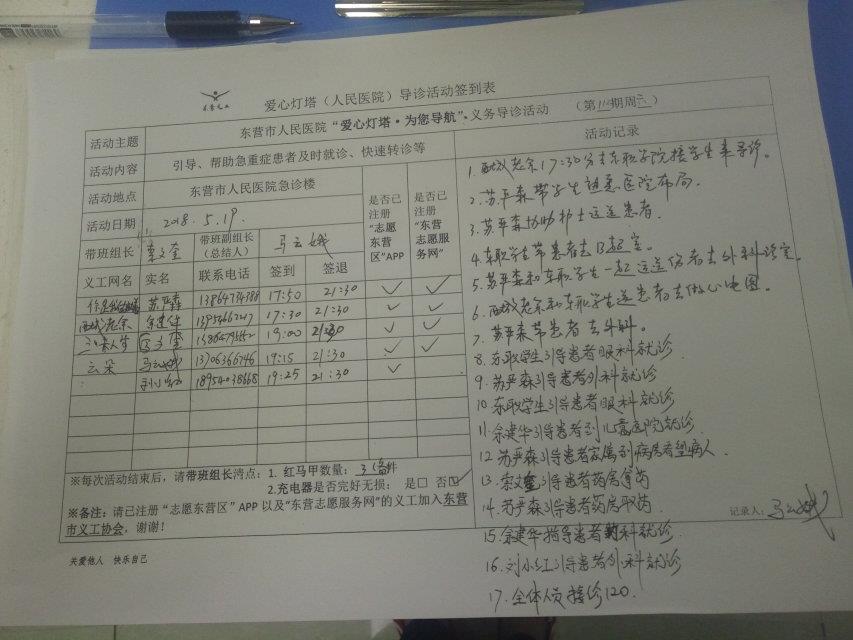 东营义工
爱心灯塔（人民医院）导诊活动签到表
活动主题 东营市人民医院“爱心灯塔·为您导航”、义务导诊活动 （第 期周六）
活动内容 引导、帮助急重症患者及时就诊、快速转诊等
活动地点 东营市人民医院急诊楼
活动日期 2018.5.19.
是否已注册“志愿东营区”APP
是否已注册“东营志愿服务网”
带班组长 带班副组长（总结人） 马云娥
义工网名 实名 联系电话 签到 签退
苏严森 17:50 21:30
西城老余 余建华 17:30 21:30
19:00 21:30
云朵 马云娥 13706366146 19:15 21:30
18954038668 19:25 21:30
※每次活动结束后，请带班组长清点：1. 红马甲数量： 件
2.充电器是否完好无损： 是□ 否□
※备注：请已注册“志愿东营区”APP 以及“东营志愿服务网”的义工加入东营
市义工协会，谢谢！
关爱他人 快乐自己
活动记录
1. 西城老余17:30分去东职学院接学生来导诊。
2. 苏严森带学生熟悉医院布局.
3. 苏严森协助护士运送患者.
4. 东职学生带患者去B超室.
5. 苏严森和东职学生一起运送伤者去外科诊室.
6. 西城老余和东职学生送患者去做心电图.
7. 苏严森带患者去外科。
8. 东职学生引导患者眼科就诊
9. 苏严森引导患者外科就诊
10. 东职学生引导患者眼科就诊
11. 余建华引导患者到儿童医院就诊
12 苏严森引导患者家属到病房看望病人
13. 引导患者药房拿药
14. 苏严森引导患者药房取药
15. 余建华指导患者 科就诊
16. 刘小红引导患者外科就诊
17. 全体人员接诊120.
记录人：马云娥